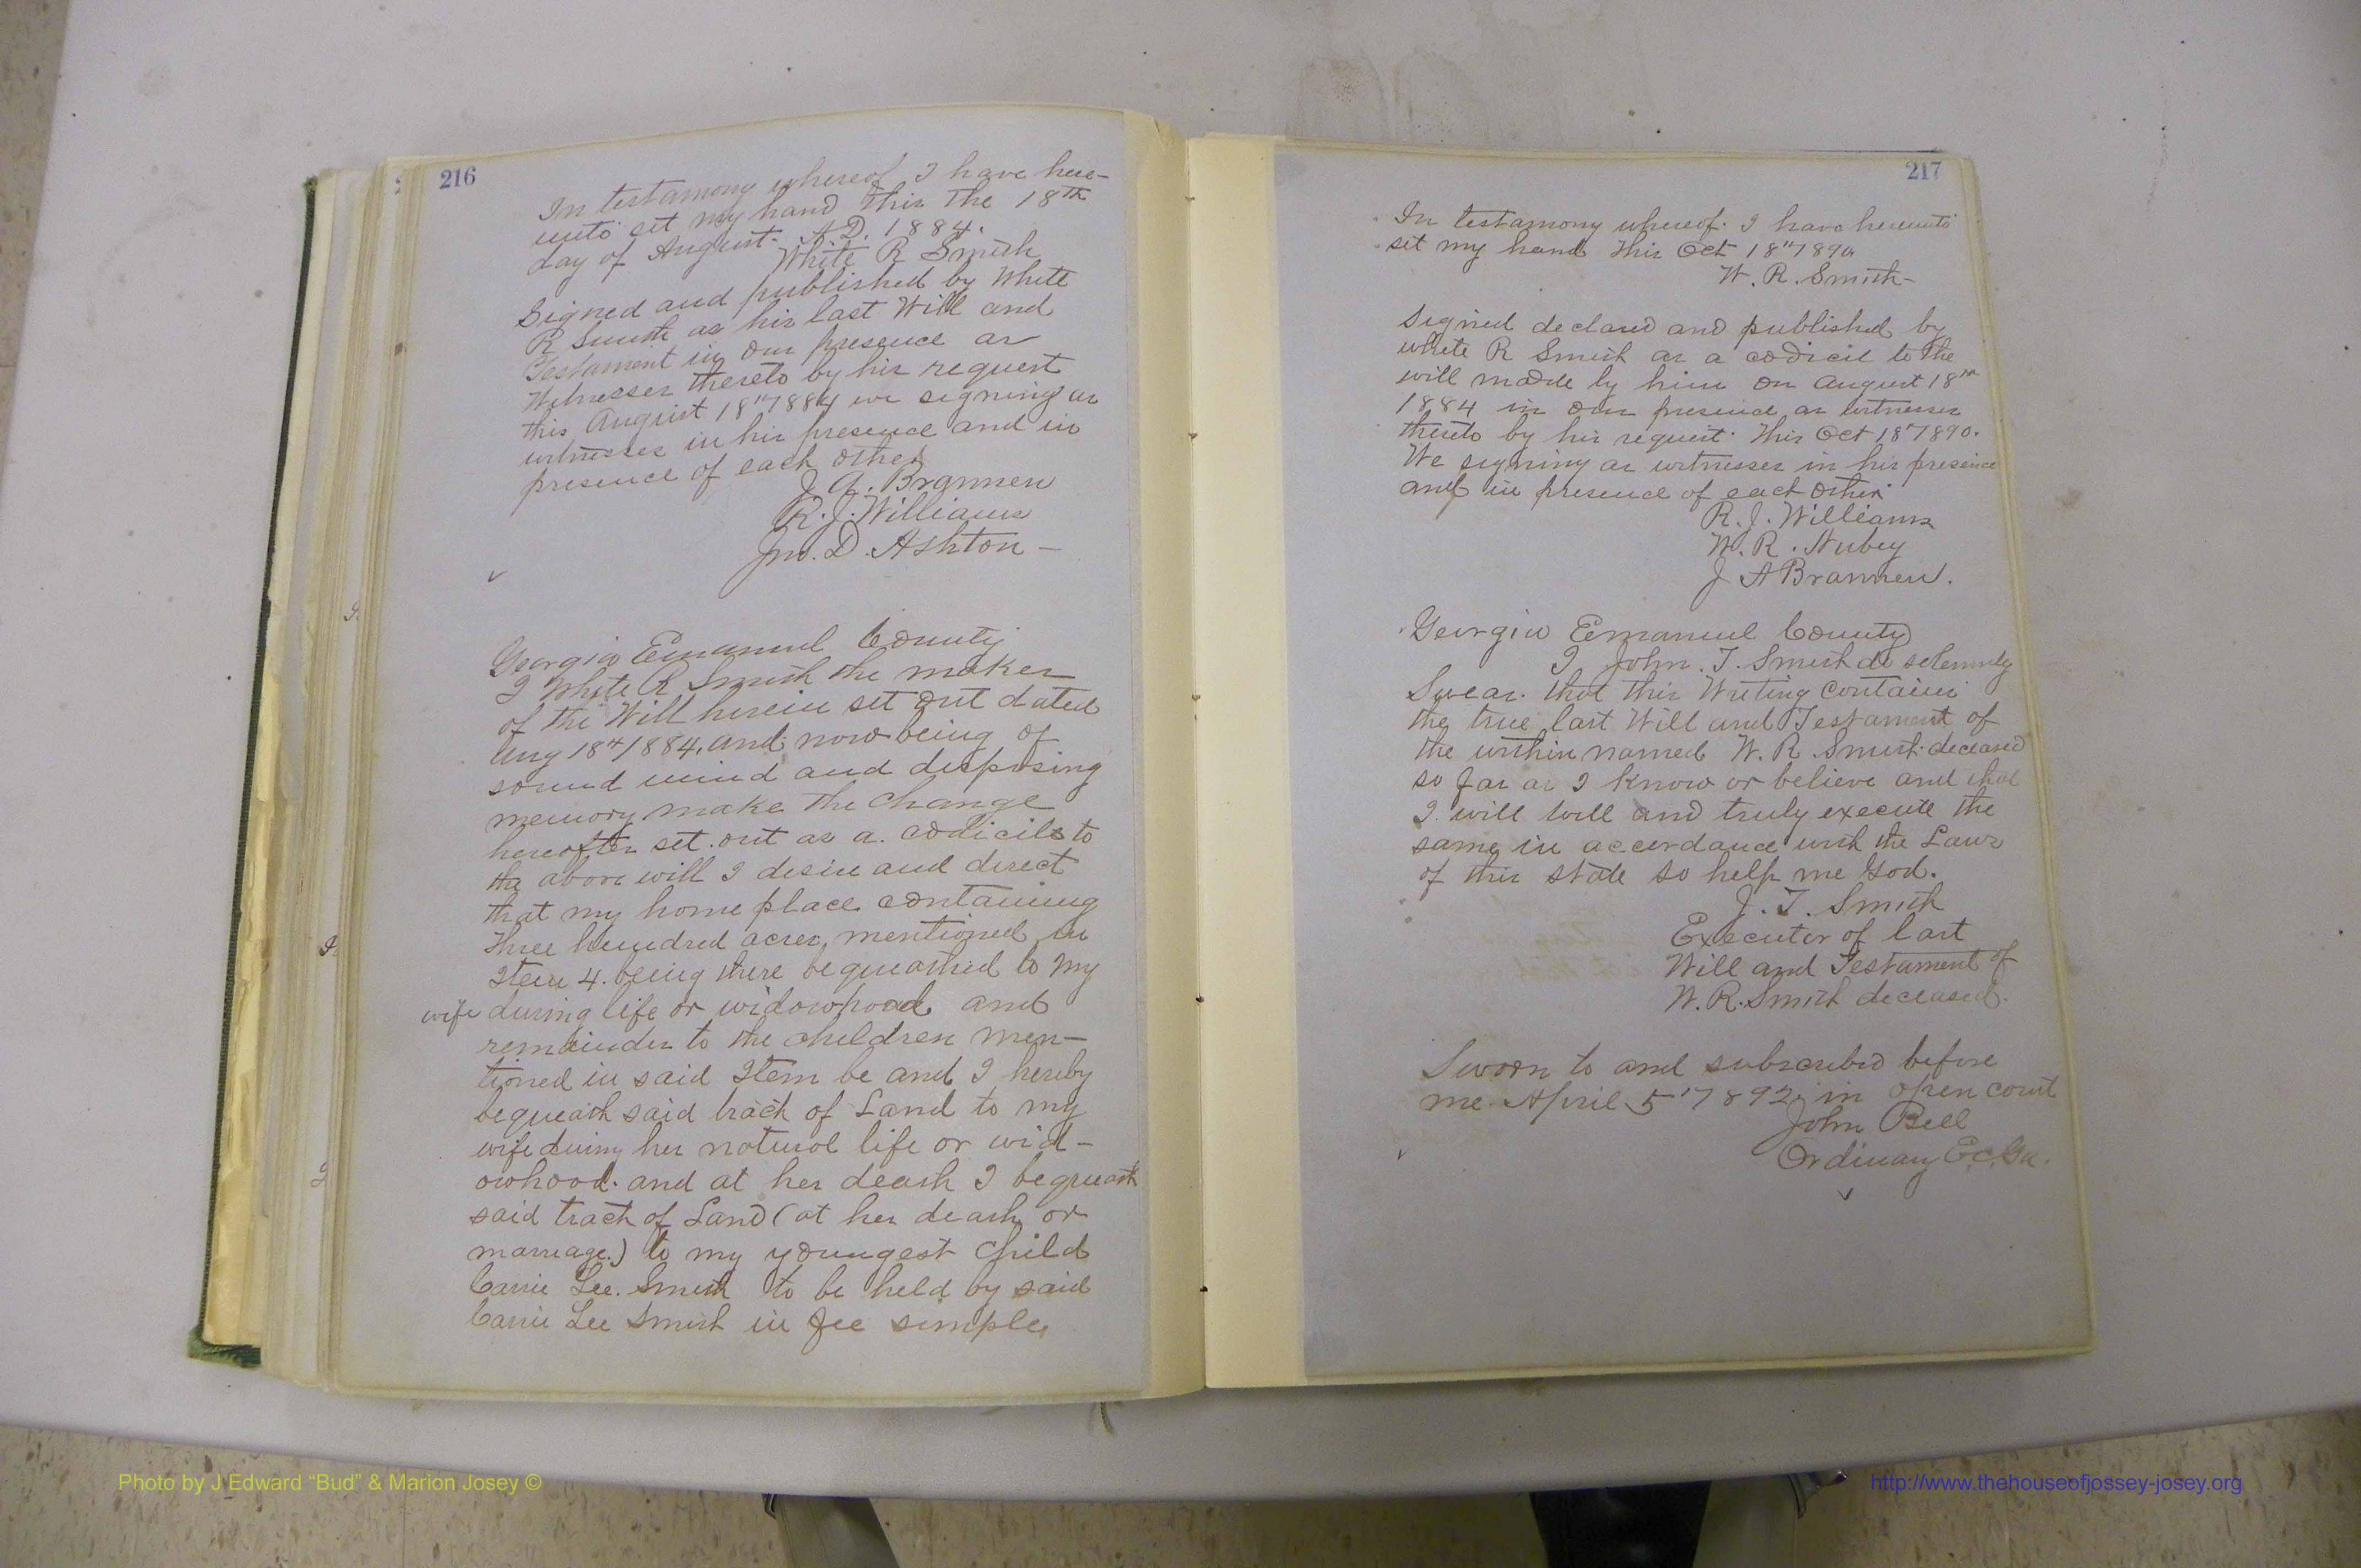 216
In testamony whereof I have here-
unto set my hand this the 18th
day of August. A.D. 1884.
White R Smith
Signed and published by White
R Smith as his last Will and
Testament in our presence as
Witnesses thereto by his request
this August 18th 1884 we signing as
witnesses in his presence and in
presence of each other
J. A. Brannen
R. J. Williams
Jno. D. Ashton -
Georgia Emanuel County
I White R Smith the maker
of the Will herein set out dated
Aug 18th 1884, and now being of
sound mind and disposing
memory make the change
hereafter set out as a codicil to
the above will I desire and direct
that my home place containing
three hundred acres, mentioned in
Item 4. being there bequeathed to my
wife during life or widowhood and
remainder to the children men-
tioned in said Item be and I hereby
bequeath said tract of Land to my
wife during her natural life or wid-
owhood. and at her death I bequeath
said tract of Land (at her death or
marriage.) to my youngest child
Carrie Lee. Smith to be held by said
Carrie Lee Smith in fee simple,
217
In testamony whereof. I have hereunto
set my hand this Oct 18th 1890
W. R. Smith-
Signed declared and published by
white R Smith as a codicil to the
will made by him on August 18th
1884 in our presence as witnesses
thereto by his request. This Oct 18" 1890.
We signing as witnesses in his presence
and in presence of each other.
R. J. Williams
W. R. Hubey
J A Brannen.
Georgia Emanuel County
I John. T. Smith do solemnly
Swear. that this Writing contains
the true last Will and Testament of
the within named W. R. Smith. deceased
so far as I know or believe and that
I. will well and truly execute the
same in accordance with the Laws
of this state so help me God.
J. T. Smith
Executor of last
Will and Testament of
W. R. Smith deceased.
Sworn to and subscribed before
me April 5" 1892. in open court
John Bell
Ordinary E.C. Ga.
Photo by J Edward “Bud” & Marion Josey ©
http://www.thehouseofjossey-josey.org